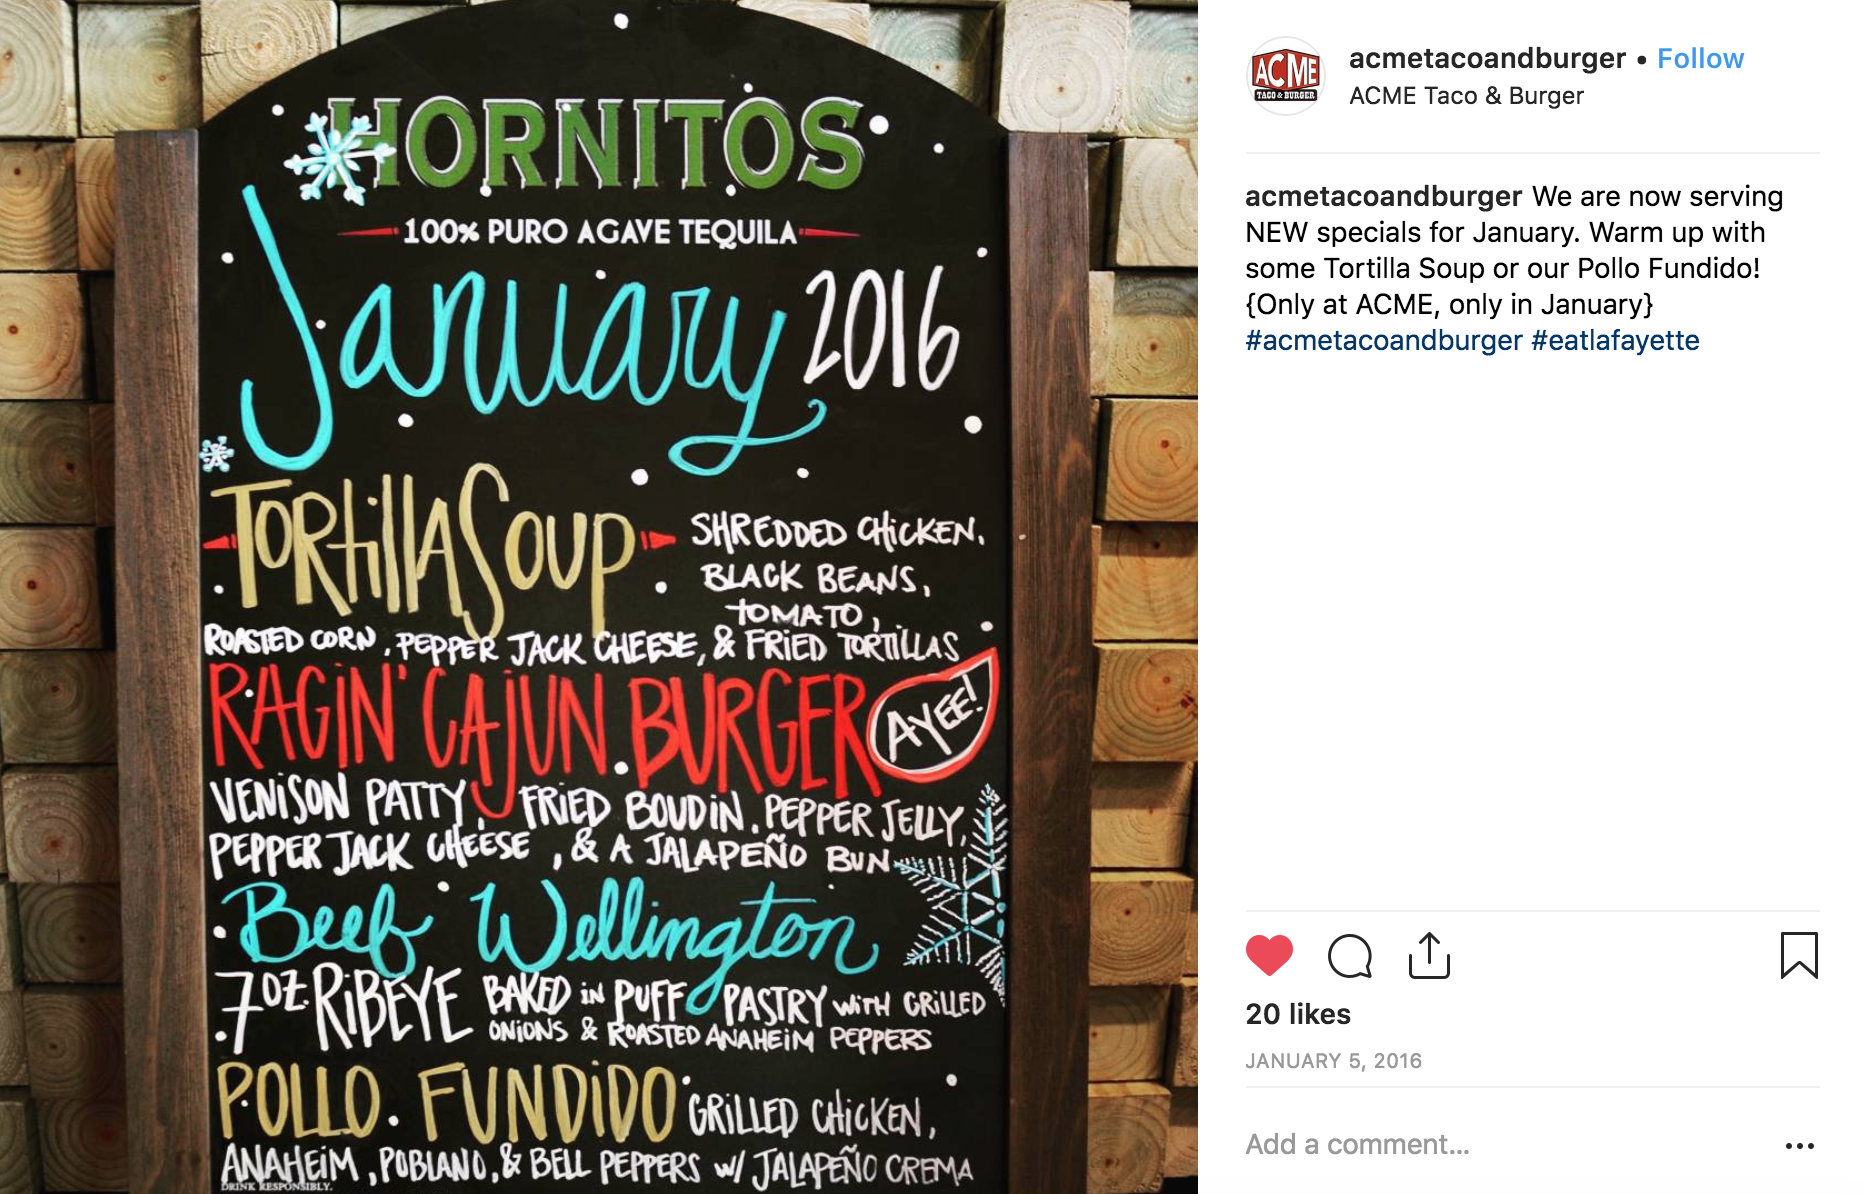 HORNITOS
100% PURO AGAVE TEQUILA
January 2016
TORTILLA SOUP
SHREDDED CHICKEN,
BLACK BEANS,
TOMATO,
ROASTED CORN, PEPPER JACK CHEESE, & FRIED TORTILLAS
RAGIN' CAJUN BURGER AYEE!
VENISON PATTY, FRIED BOUDIN, PEPPER JELLY,
PEPPER JACK CHEESE, & A JALAPEÑO BUN
Beef Wellington
7oz. RIBEYE BAKED in PUFF PASTRY WITH GRILLED
ONIONS & ROASTED ANAHEIM PEPPERS
POLLO FUNDIDO GRILLED CHICKEN,
ANAHEIM, POBLANO, & BELL PEPPERS w/ JALAPEÑO CREMA
DRINK RESPONSIBLY.
ACME
TACO & BURGER
acmetacoandburger • Follow
ACME Taco & Burger
acmetacoandburger We are now serving
NEW specials for January. Warm up with
some Tortilla Soup or our Pollo Fundido!
{Only at ACME, only in January}
#acmetacoandburger #eatlafayette
20 likes
JANUARY 5, 2016
Add a comment...